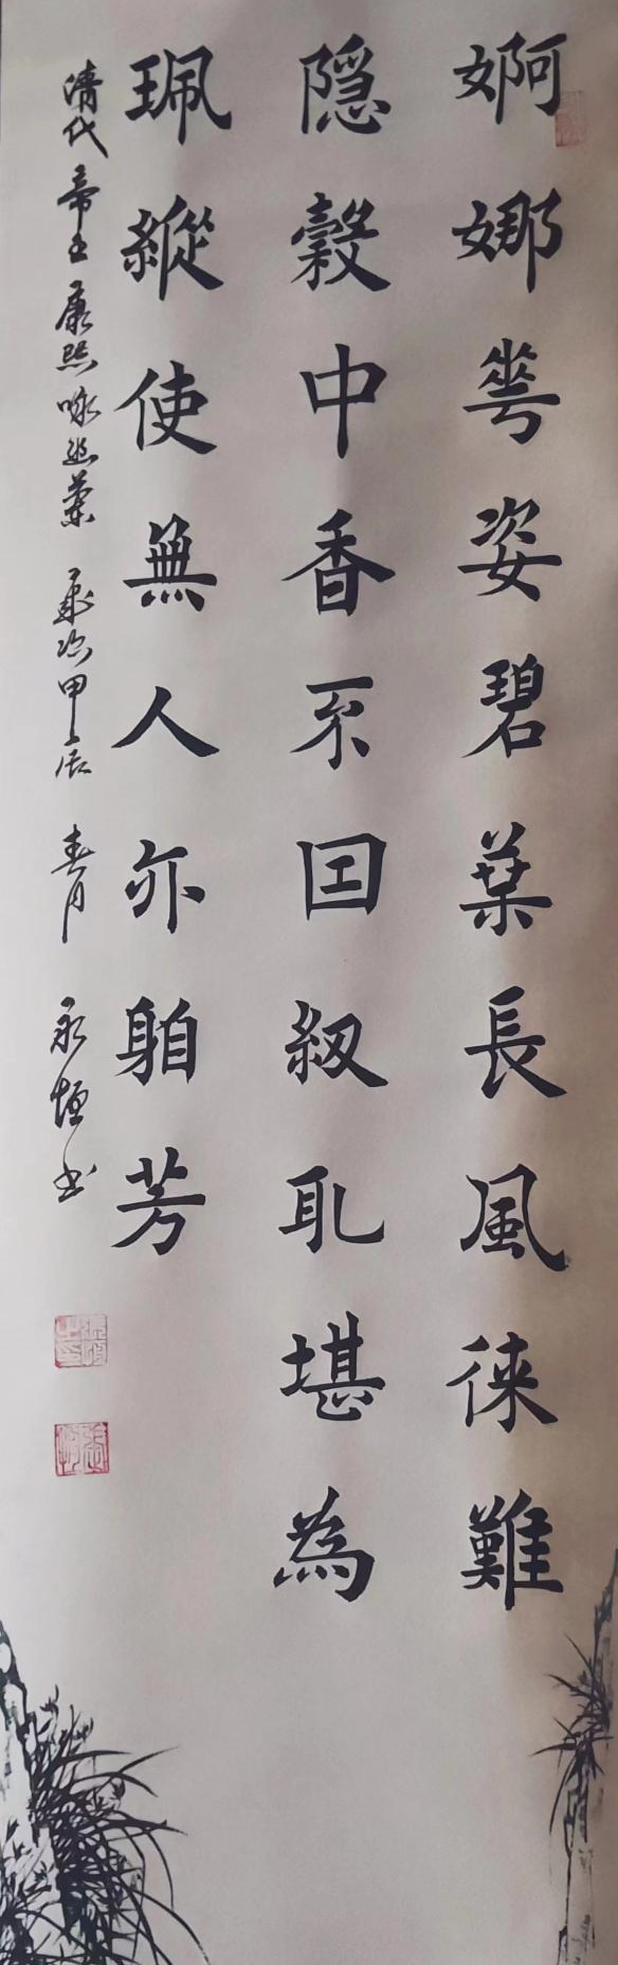 婀娜𠌶姿碧葉長風徠難
隐穀中香不囙紉耴堪為
珮縱使無人亦自芳
清代帝王康熙咏幽蘭 歲次甲辰 春月 永恒书